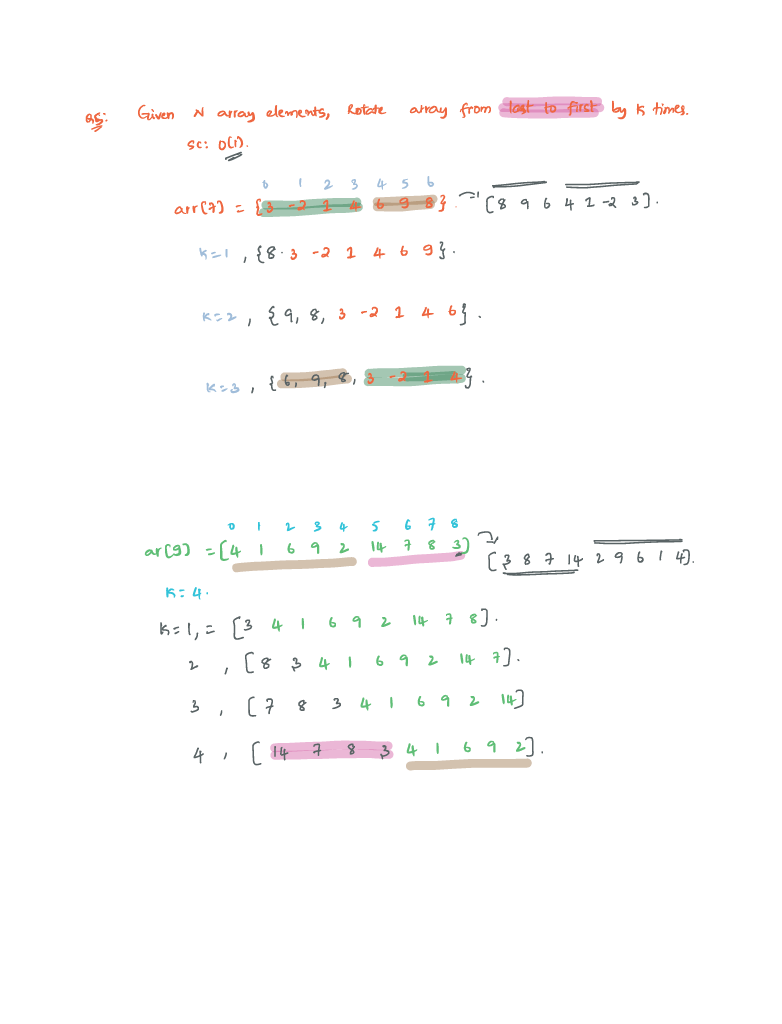 Q5: Given N array elements, Rotate array from last to first by K times.
SC: O(1).
0 1 2 3 4 5 6
arr(7) = {3 -2 1 4 6 9 8}. → [8 9 6 4 1 -2 3].
K=1, {8. 3 -2 1 4 6 9}.
K=2, {9, 8, 3 -2 1 4 6}.
K=3, {6, 9, 8, 3 -2 1 4}.
0 1 2 3 4 5 6 7 8
ar(9) = [4 1 6 9 2 14 7 8 3] → [3 8 7 14 2 9 6 1 4].
K=4.
K=1, = [3 4 1 6 9 2 14 7 8].
2, [8 3 4 1 6 9 2 14 7].
3, [7 8 3 4 1 6 9 2 14]
4, [14 7 8 3 4 1 6 9 2].